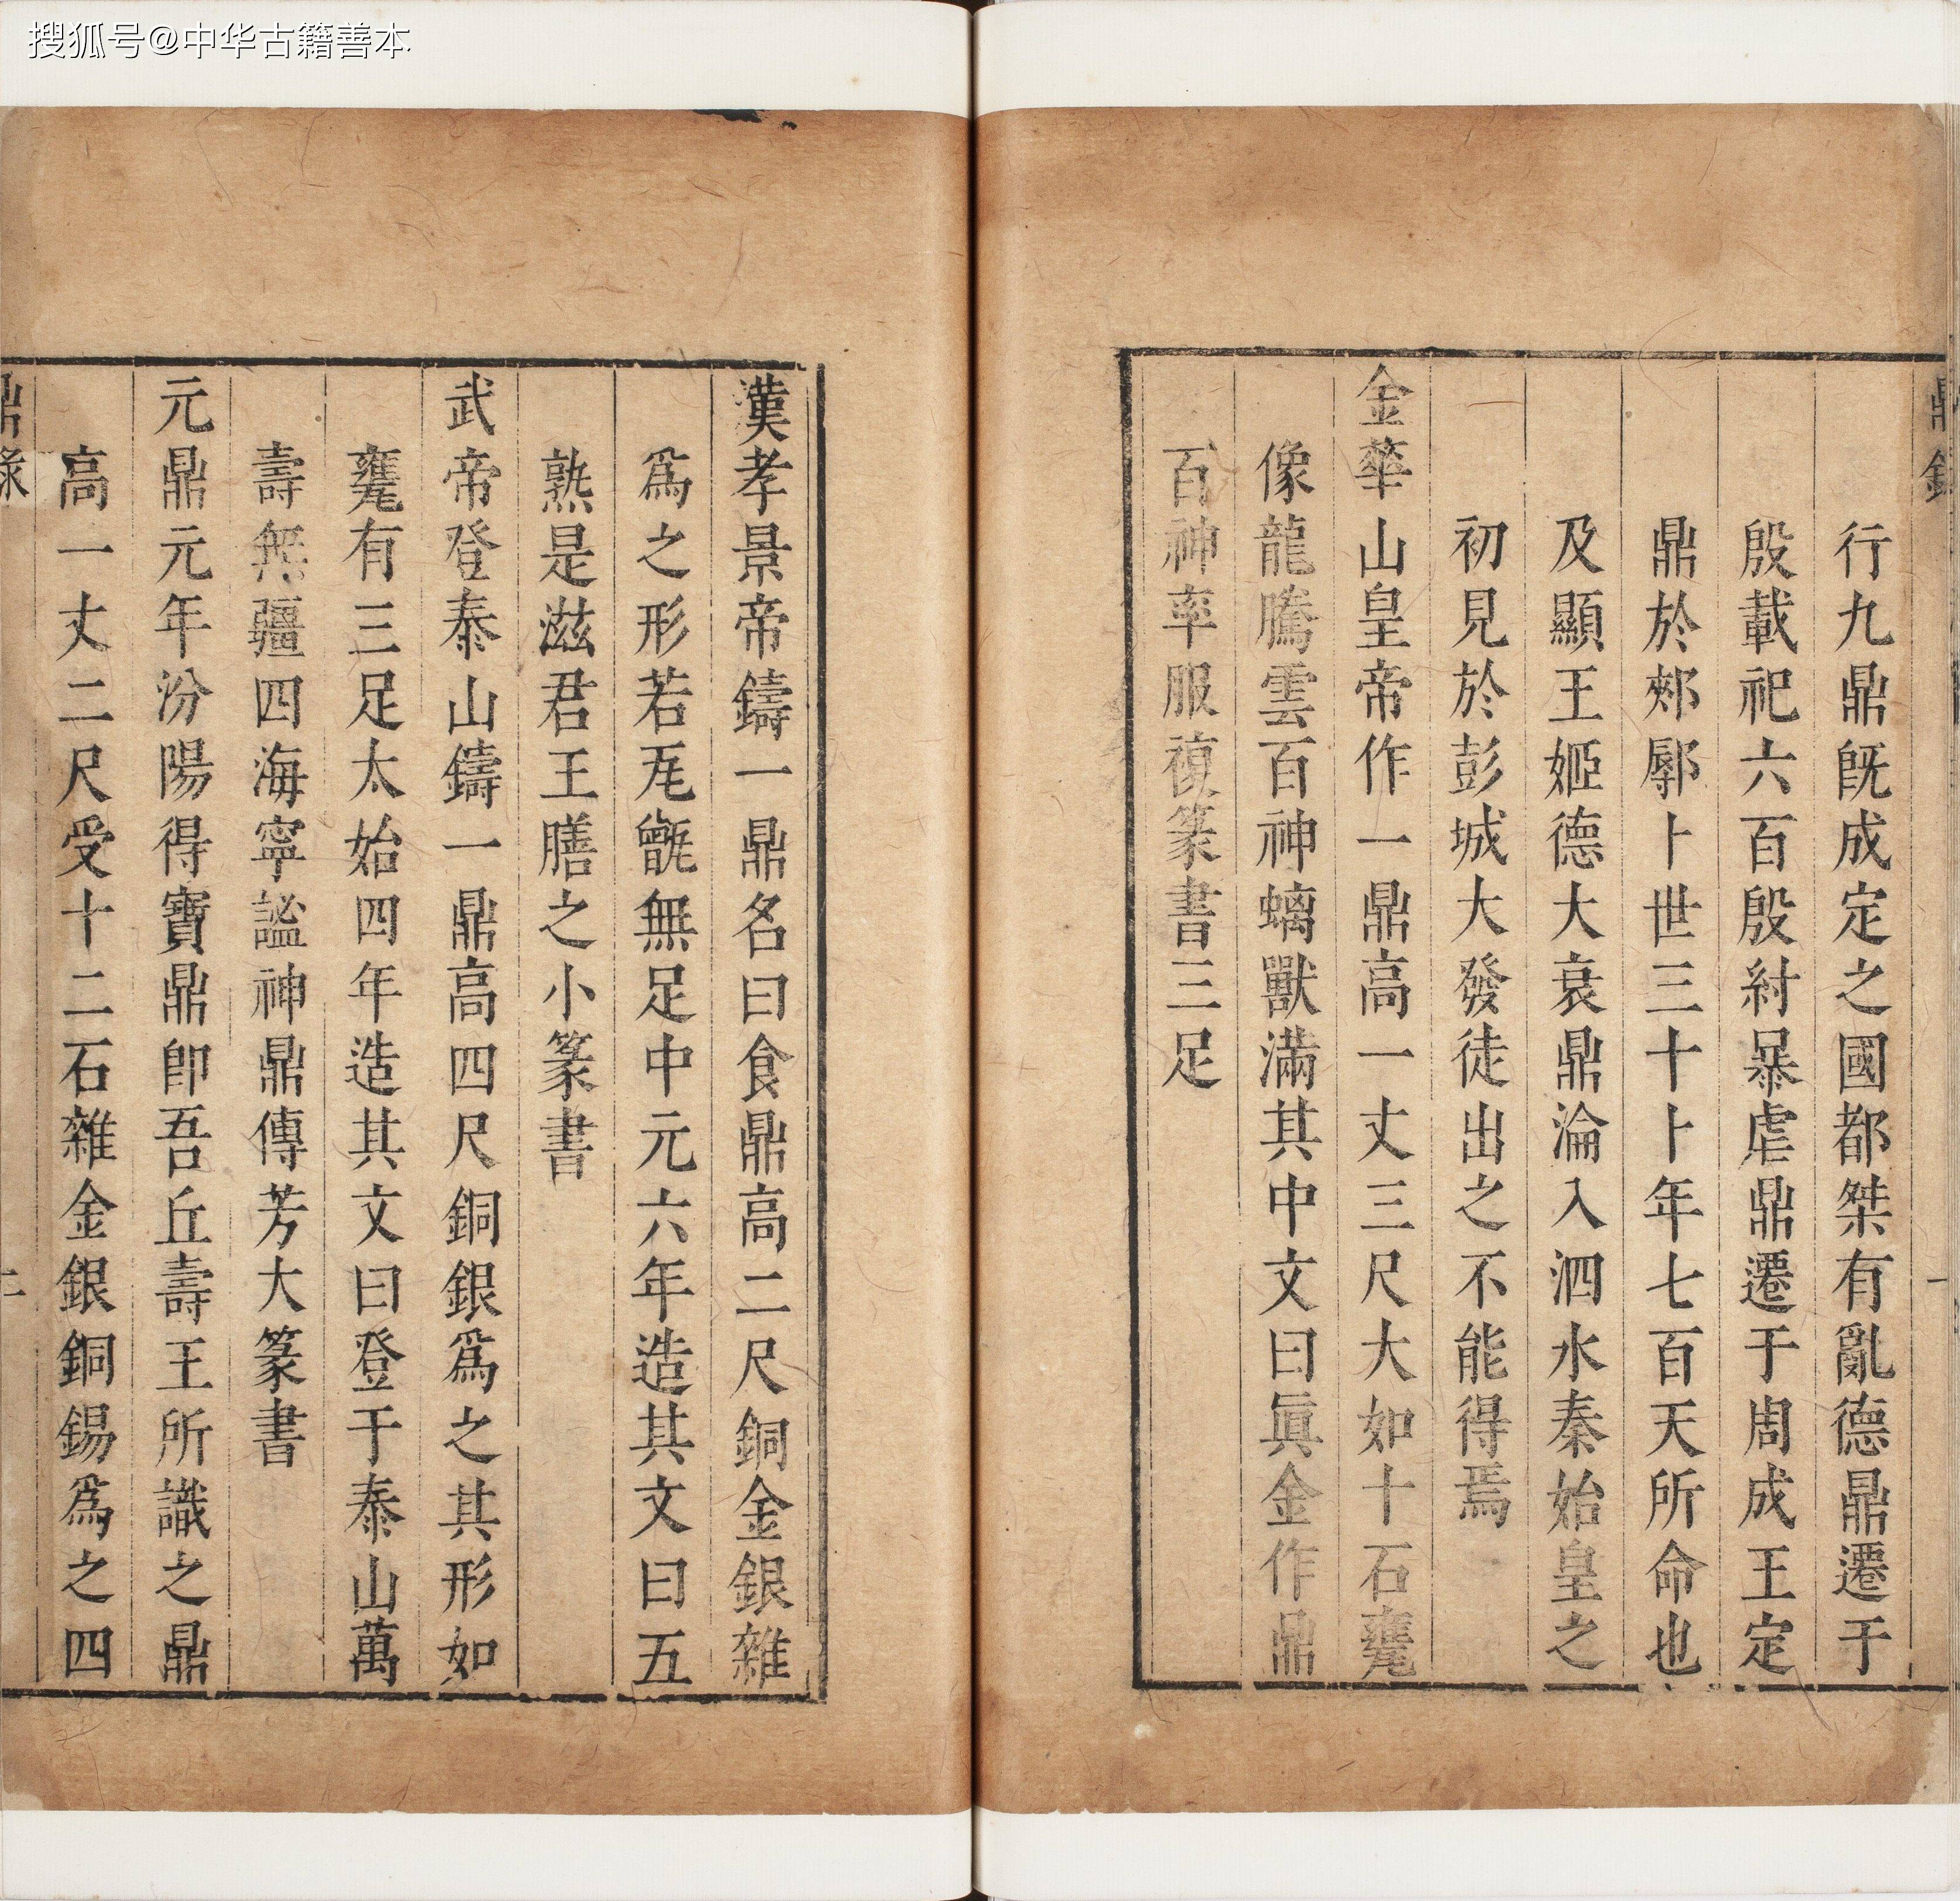 搜狐号@中华古籍善本
行九鼎既成定之國都桀有亂德鼎遷于
殷載祀六百殷紂暴虐鼎遷于周成王定
鼎於郟鄏卜世三十卜年七百天所命也
及顯王姬德大衰鼎淪入泗水秦始皇之
初見於彭城大發徒出之不能得焉
金華山皇帝作一鼎高一丈三尺大如十石甕
像龍騰雲百神螭獸滿其中文曰眞金作鼎
百神率服複篆書三足
漢孝景帝鑄一鼎名曰食鼎高二尺銅金銀雜
爲之形若瓦甑無足中元六年造其文曰五
熟是滋君王膳之小篆書
武帝登泰山鑄一鼎高四尺銅銀爲之其形如
甕有三足太始四年造其文曰登于泰山萬
壽無疆四海寧謐神鼎傳芳大篆書
元鼎元年汾陽得寶鼎卽吾丘壽王所識之鼎
高一丈二尺受十二石雜金銀銅錫爲之四
鼎錄
二